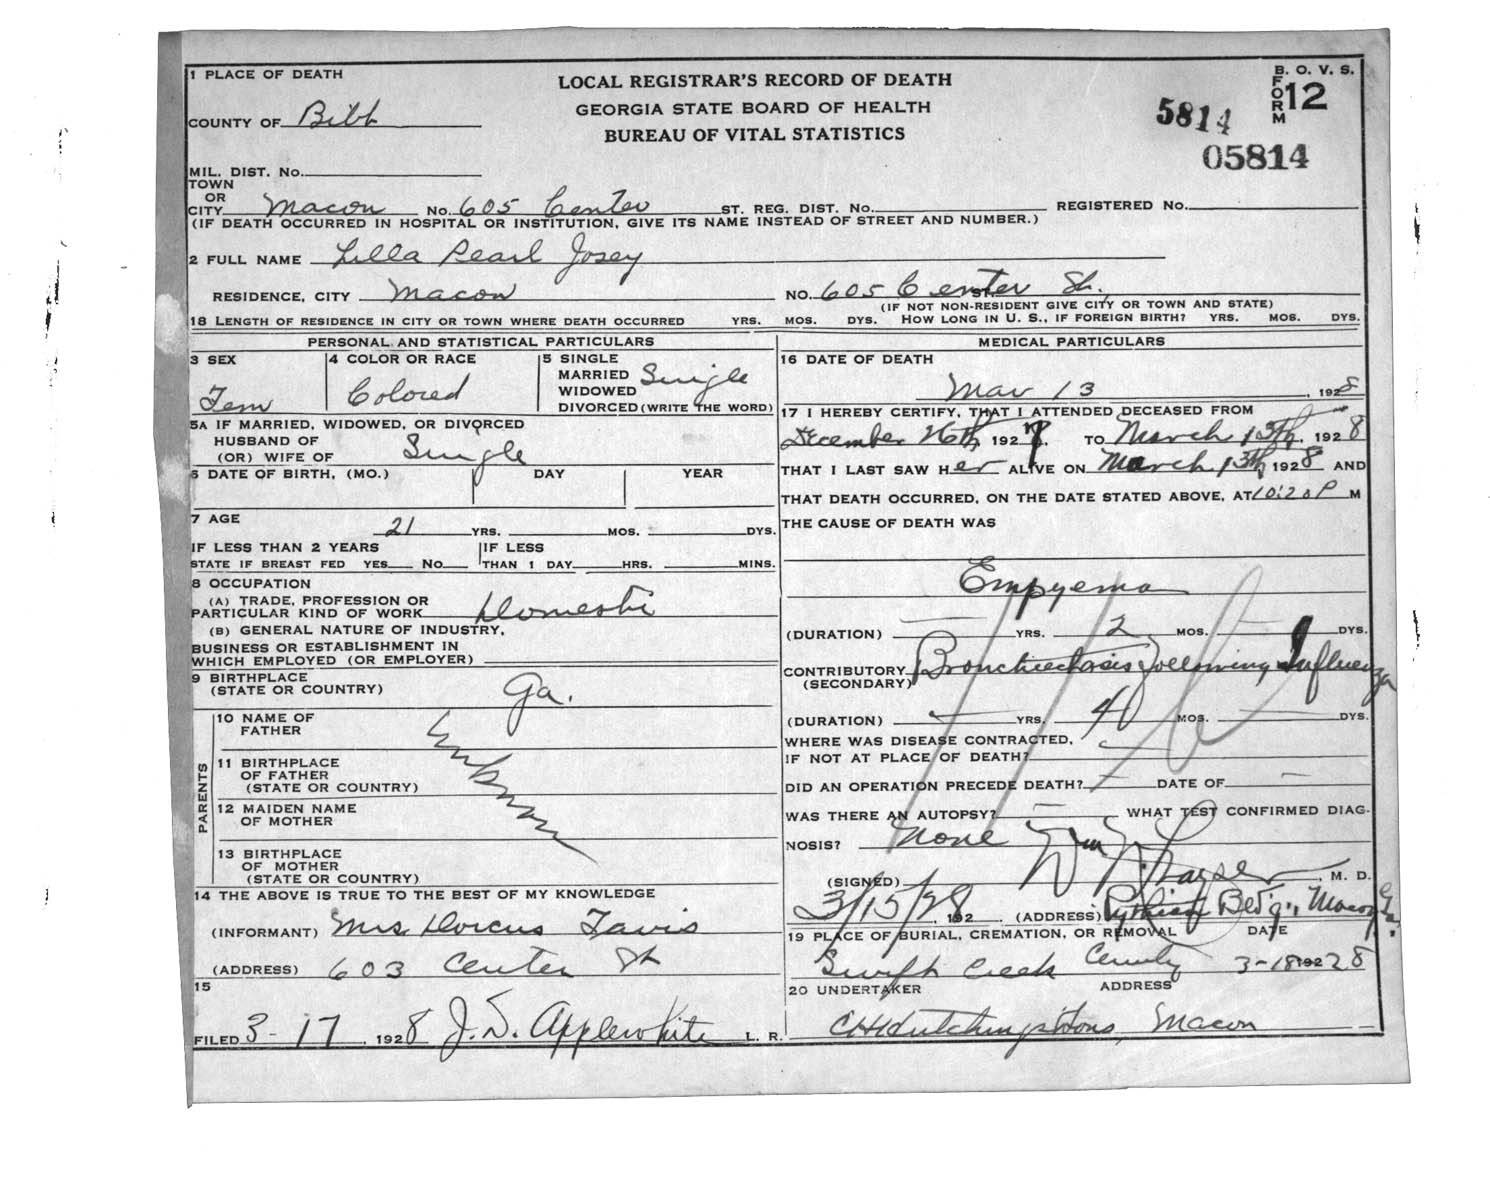 1 PLACE OF DEATH
COUNTY OF Bibb
LOCAL REGISTRAR'S RECORD OF DEATH
GEORGIA STATE BOARD OF HEALTH
BUREAU OF VITAL STATISTICS
B. O. V. S.
FORM 12
5814
05814
MIL. DIST. No.
TOWN OR CITY Macon No. 605 Center ST. REG. DIST. No. REGISTERED No.
(IF DEATH OCCURRED IN HOSPITAL OR INSTITUTION, GIVE ITS NAME INSTEAD OF STREET AND NUMBER.)
2 FULL NAME Lilla Pearl Josey
RESIDENCE, CITY Macon NO. 605 Center St.
(IF NOT NON-RESIDENT GIVE CITY OR TOWN AND STATE)
18 LENGTH OF RESIDENCE IN CITY OR TOWN WHERE DEATH OCCURRED YRS. MOS. DYS. HOW LONG IN U. S., IF FOREIGN BIRTH? YRS. MOS. DYS.
PERSONAL AND STATISTICAL PARTICULARS
3 SEX
Fem
4 COLOR OR RACE
Colored
5 SINGLE
MARRIED
WIDOWED
DIVORCED (WRITE THE WORD)
Single
5A IF MARRIED, WIDOWED, OR DIVORCED
HUSBAND OF
(OR) WIFE OF
Single
6 DATE OF BIRTH, (MO.) DAY YEAR
7 AGE 21 YRS. MOS. DYS.
IF LESS THAN 2 YEARS
STATE IF BREAST FED YES No
IF LESS
THAN 1 DAY HRS. MINS.
8 OCCUPATION
(A) TRADE, PROFESSION OR
PARTICULAR KIND OF WORK Domestic
(B) GENERAL NATURE OF INDUSTRY,
BUSINESS OR ESTABLISHMENT IN
WHICH EMPLOYED (OR EMPLOYER)
9 BIRTHPLACE
(STATE OR COUNTRY) Ga.
PARENTS
10 NAME OF
FATHER
11 BIRTHPLACE
OF FATHER
(STATE OR COUNTRY)
12 MAIDEN NAME
OF MOTHER
13 BIRTHPLACE
OF MOTHER
(STATE OR COUNTRY)
unknown
14 THE ABOVE IS TRUE TO THE BEST OF MY KNOWLEDGE
(INFORMANT) Mrs Dorcus Favis
(ADDRESS) 603 Center St
15
FILED 3-17, 1928 J. D. Applewhite L. R.
MEDICAL PARTICULARS
16 DATE OF DEATH
Mar 13, 1928
17 I HEREBY CERTIFY, THAT I ATTENDED DECEASED FROM
December 26th, 1927. TO March 13th, 1928
THAT I LAST SAW Her ALIVE ON March 13th 1928 AND
THAT DEATH OCCURRED, ON THE DATE STATED ABOVE, AT 10:20 P M
THE CAUSE OF DEATH WAS
Empyema
(DURATION) YRS. 2 MOS. DYS.
CONTRIBUTORY Bronchiectasis following Influenza
(SECONDARY)
(DURATION) YRS. MOS. DYS.
WHERE WAS DISEASE CONTRACTED,
IF NOT AT PLACE OF DEATH?
DID AN OPERATION PRECEDE DEATH? DATE OF
WAS THERE AN AUTOPSY? WHAT TEST CONFIRMED DIAG-
NOSIS? None
(SIGNED) M. D.
3/15/28, 192 (ADDRESS) Pythian Bldg., Macon, Ga.
19 PLACE OF BURIAL, CREMATION, OR REMOVAL DATE
Swift Creek Cemty 3-18 192 28
20 UNDERTAKER ADDRESS
CH Hutchings & Sons, Macon